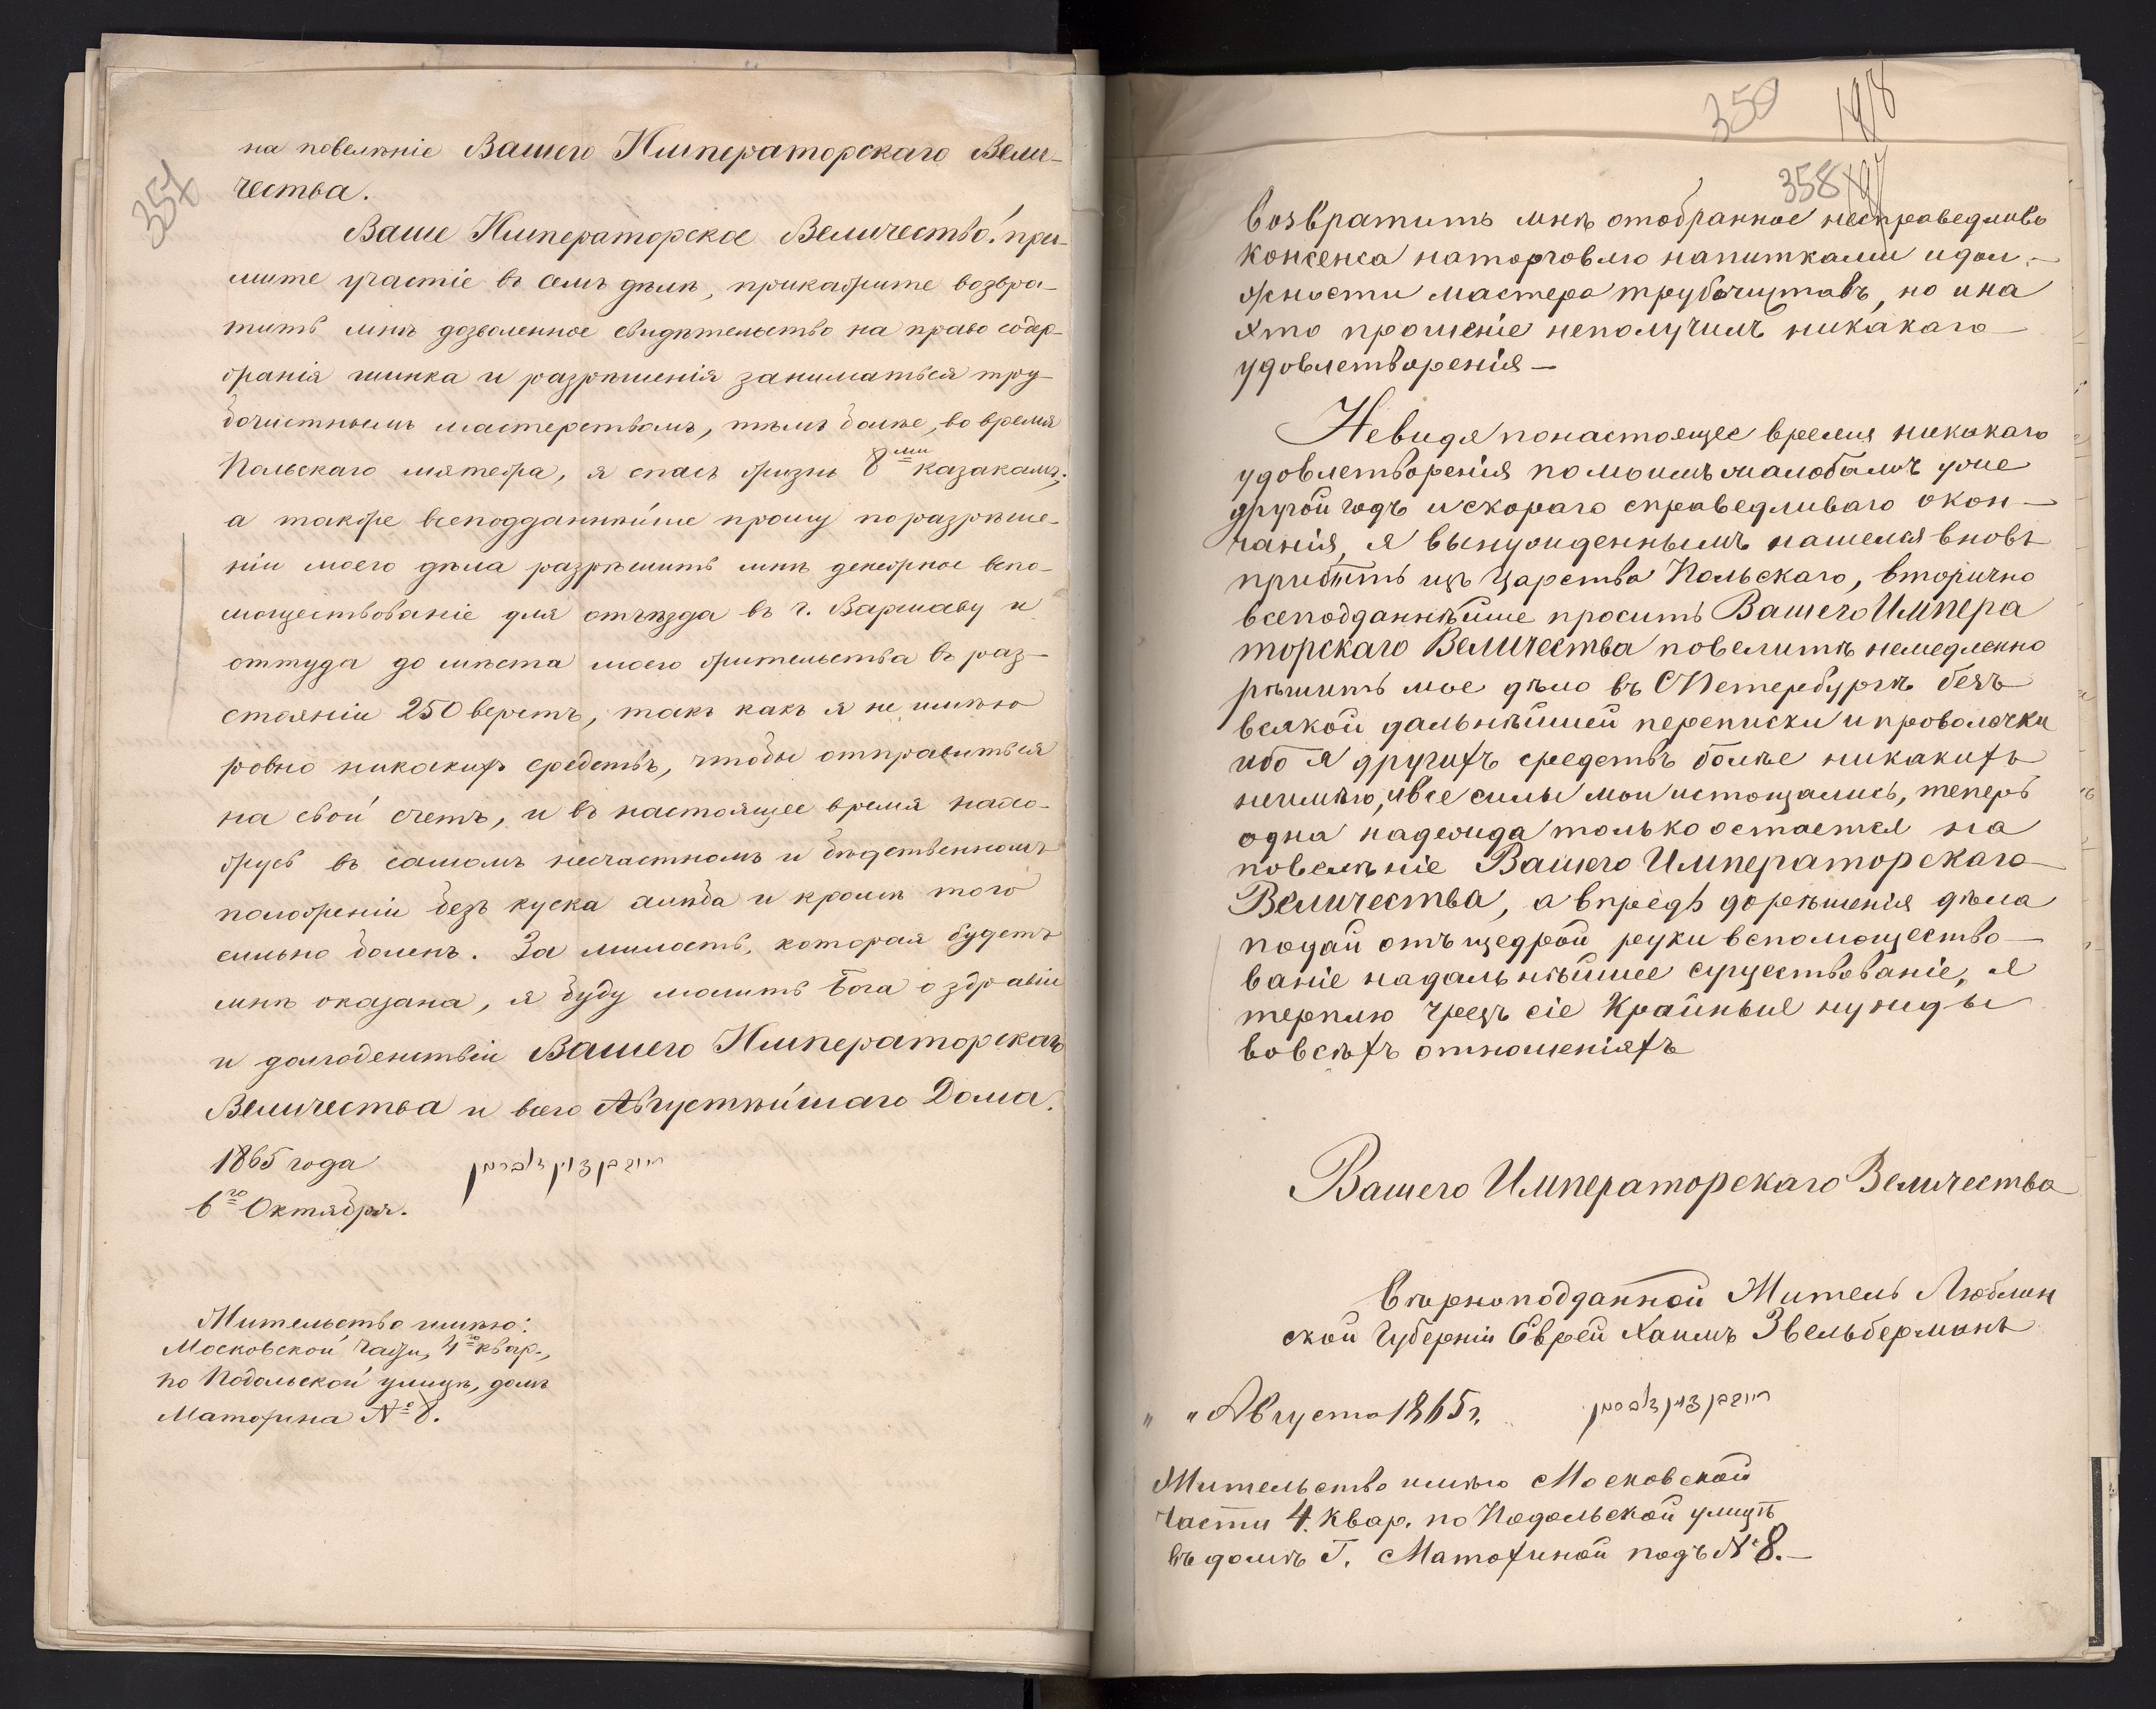 357
на повелѣніе Вашего Императорскаго Вели-
чества.
Ваше Императорское Величество! при-
мите участіе въ семъ дѣлѣ, прикажите возвра-
тить мнѣ дозволенное свидѣтельство на право содер-
жанія шинка и разрѣшенія заниматься тру-
бочистнымъ мастерствомъ, тѣмъ болѣе, во время
Польскаго мятежа, я спасъ жизнь 8ми казакамъ;
а также всеподданнѣйше прошу по разрѣше-
ніи моего дѣла разрѣшить мнѣ денежное вспо-
моществованіе для отъѣзда въ г. Варшаву и
оттуда до мѣста моего жительства въ раз-
стояніи 250 верстъ, такъ какъ я не имѣю
ровно никакихъ средствъ, чтобы отправиться
на свой счетъ, и въ настоящее время нахо-
жусь въ самомъ несчастномъ и бѣдственномъ
положеніи безъ куска хлѣба и кромѣ того
сильно боленъ. За милость, которая будетъ
мнѣ оказана, я буду молить Бога о здравіи
и долгоденствіи Вашего Императорскаго
Величества и всего Августѣйшаго Дома.
1865 года
6го Октября.
Жительство имѣю:
Московской части, 4го квар.,
по Подольской улицѣ, домъ
Матожина № 8.
350 198
358 197
возвратить мнѣ отобранное несправедливо
консенса наторговлю напитками идол-
жности мастера трубочистовъ, но и на
это прошеніе неполучилъ никакаго
удовлетворенія —
Невидя понастоящее время никакаго
удовлетворенія помоимъ жалобамъ уже
другой годъ искораго справедливаго окон-
чанія, я вынужденнымъ нашелся вновь
прибыть изъ Царства Польскаго, вторично
всеподданнѣйше просить Вашего Импера
торскаго Величества повелить немедленно
рѣшить мое дѣло въ СПетербургѣ безъ
всякой дальнѣйшей переписки и проволочки
ибо я другихъ средствъ болѣе никакихъ
неимѣю, ивсе силы мои истощались, теперь
одна надежда только остается на
повелѣніе Вашего Императорскаго
Величества, а впредь дорѣшенія дѣла
подай отъ щедрой руки вспомощество-
ваніе надальнѣйшее существованіе, я
терплю чрезъ сіе Крайныя нужды
вовсѣхъ отношеніяхъ
Вашего Императорскаго Величества
Вѣрноподданной Житель Люблин
ской Губерніи Еврей Хаимъ Звельберманъ
„ „ Августа 1865 г.
Жительство имѣю Московской
части 4. квар. по Подольской улицѣ
въ домѣ Г. Матожиной подъ № 8.—